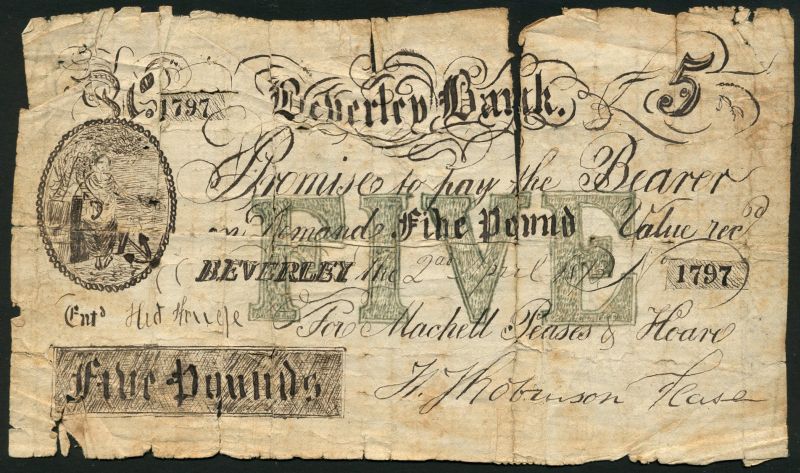 No 1797 Beverley Bank. £5
I Promise to pay the Bearer
on Demand Five Pound Value recd
FIVE
BEVERLEY the 2nd April No 1797
Entd
For Machell Peases & Hoare
Five Pounds